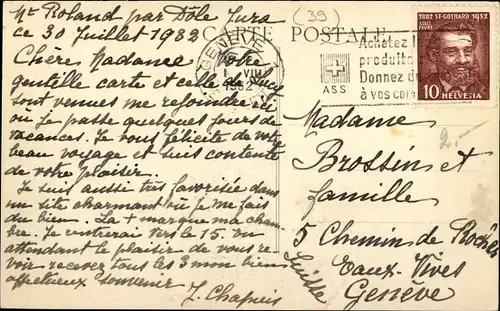 Mt Roland par Dôle Jura
ce 30 Juillet 1932
Chère Madame Votre
gentille carte et celle de
sont venues me rejoindre ici
ou Je passe quelques jours de
vacances. Je vous félicite de votre
beau voyage et suis contente
de votre plaisir.
Je suis aussi très favorisée dans
un site charmant où Je me fais
du bien. La + marque ma cham
bre. Je rentrerai vers le 15. En
attendant le plaisir de vous re
voir recevez tous les 3 mon bien
affectueux souvenir
J. Chapuis
CARTE POSTALE
(39)
GENÈVE
VIII
1932
ASS
Achetez
produits
Donnez
à vos
1882 ST-GOTHARD 1932
LOUIS FAVRE
10 HELVETIA
2.-
Madame
Brossin et
famille
5 Chemin de Roches
Eaux-Vives
Genève
Suisse